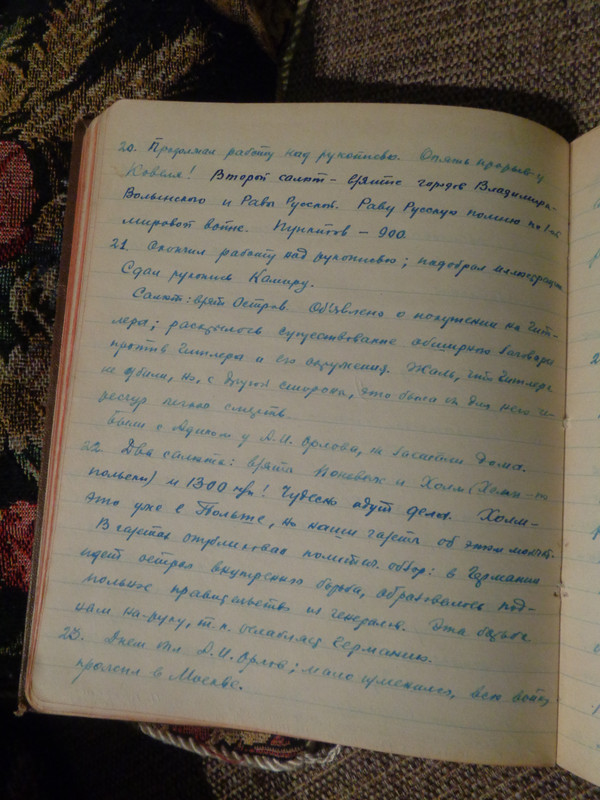 20. Продолжал работу над рукописью. Опять прорыв у
Ковеля! Второй салют – взятие городов Владимира-
Волынского и Равы Русской. Раву Русскую помню по 1-ой
мировой войне. Пунктов – 900.
21. Окончил работу над рукописью; подобрал иллюстрации.
Сдал рукопись Камиру.
Салют: взят Остров. Объявлено о покушении на Гит-
лера; раскрылось существование обширного заговора
против Гитлера и его окружения. Жаль, что Гитлера
не убили, но, с другой стороны, это была бы для него
легкая смерть.
Были с Адиком у А.И. Орлова, не застали дома.
22. Два салюта: взяты Поневеж и Холм (Хелм по
польски) и 1300 нп! Чудесно идут дела. Холм –
это уже в Польше, но наши газеты об этом молчат.
В газетах опубликован политич. обзор: в Германии
идет острая внутренняя борьба, образовалось под-
польное правительство из генералов. Эта борьба
нам на-руку, т.к. ослабляет Германию.
23. Днем был А.И. Орлов; мало изменился, всю войну
прожил в Москве.